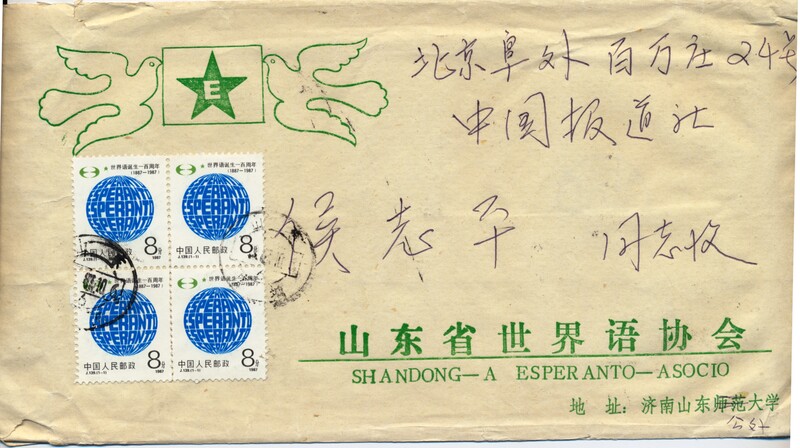 E
北京阜外百万庄24号
中国报道社
侯志平 同志收
世界语诞生一百周年
(1887-1987)
ESPERANTO
8分
中国人民邮政
J.139.(1-1) 1987
世界语诞生一百周年
(1887-1987)
ESPERANTO
8分
中国人民邮政
J.139.(1-1) 1987
世界语诞生一百周年
(1887-1987)
ESPERANTO
8分
中国人民邮政
J.139.(1-1) 1987
世界语诞生一百周年
(1887-1987)
ESPERANTO
8分
中国人民邮政
J.139.(1-1) 1987
山东省世界语协会
SHANDONG—A ESPERANTO—ASOCIO
地 址：济南山东师范大学